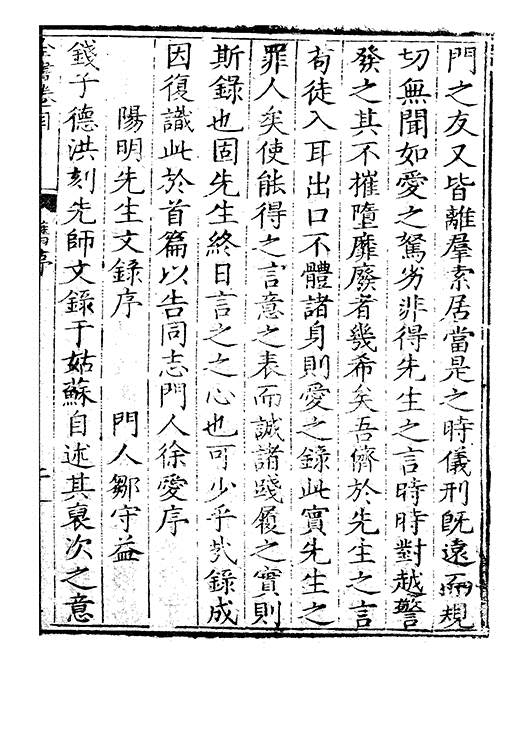 門之友又皆離羣索居當是之時儀刑既遠而規
切無聞如愛之駑劣非得先生之言時時對越警
發之其不摧墮靡廢者幾希矣吾儕於先生之言
苟徒入耳出口不體諸身則愛之錄此實先生之
罪人矣使能得之言意之表而誠諸踐履之實則
斯錄也固先生終日言之之心也可少乎哉錄成
因復識此於首篇以告同志門人徐愛序
陽明先生文錄序 門人鄒守益
錢子德洪刻先師文錄于姑蘇自述其裒次之意
全書卷首 舊序